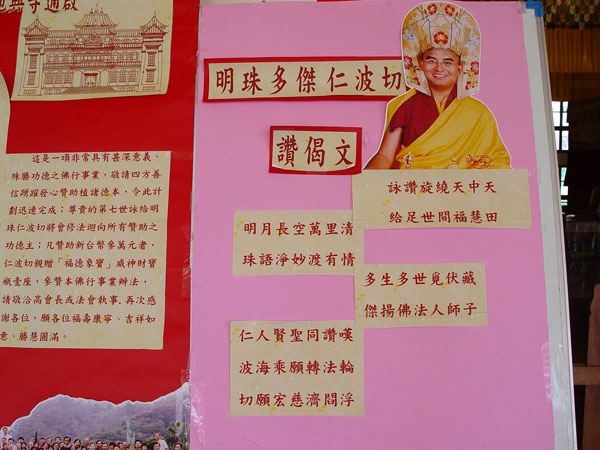 通啟
這是一項非常具有甚深意義、
殊勝功德之佛行事業，敬請四方善
信踴躍發心贊助植諸德本，令此計
劃迅速完成；尊貴的第七世詠給明
珠仁波切將會修法迴向所有贊助之
功德主；凡贊助新台幣參萬元者，
仁波切親贈「福德象寶」威神財寶
瓶壹座，參贊本佛行事業辦法，
請敬洽高會長或法會執事。再次感
謝各位，願各位福壽康寧、吉祥如
意、勝慧圓滿。
明珠多傑仁波切
讚偈文
詠讚旋繞天中天
給足世間福慧田
明月長空萬里清
珠語淨妙渡有情
多生多世覓伏藏
傑揚佛法人師子
仁人賢聖同讚嘆
波海乘願轉法輪
切願宏慈濟閻浮